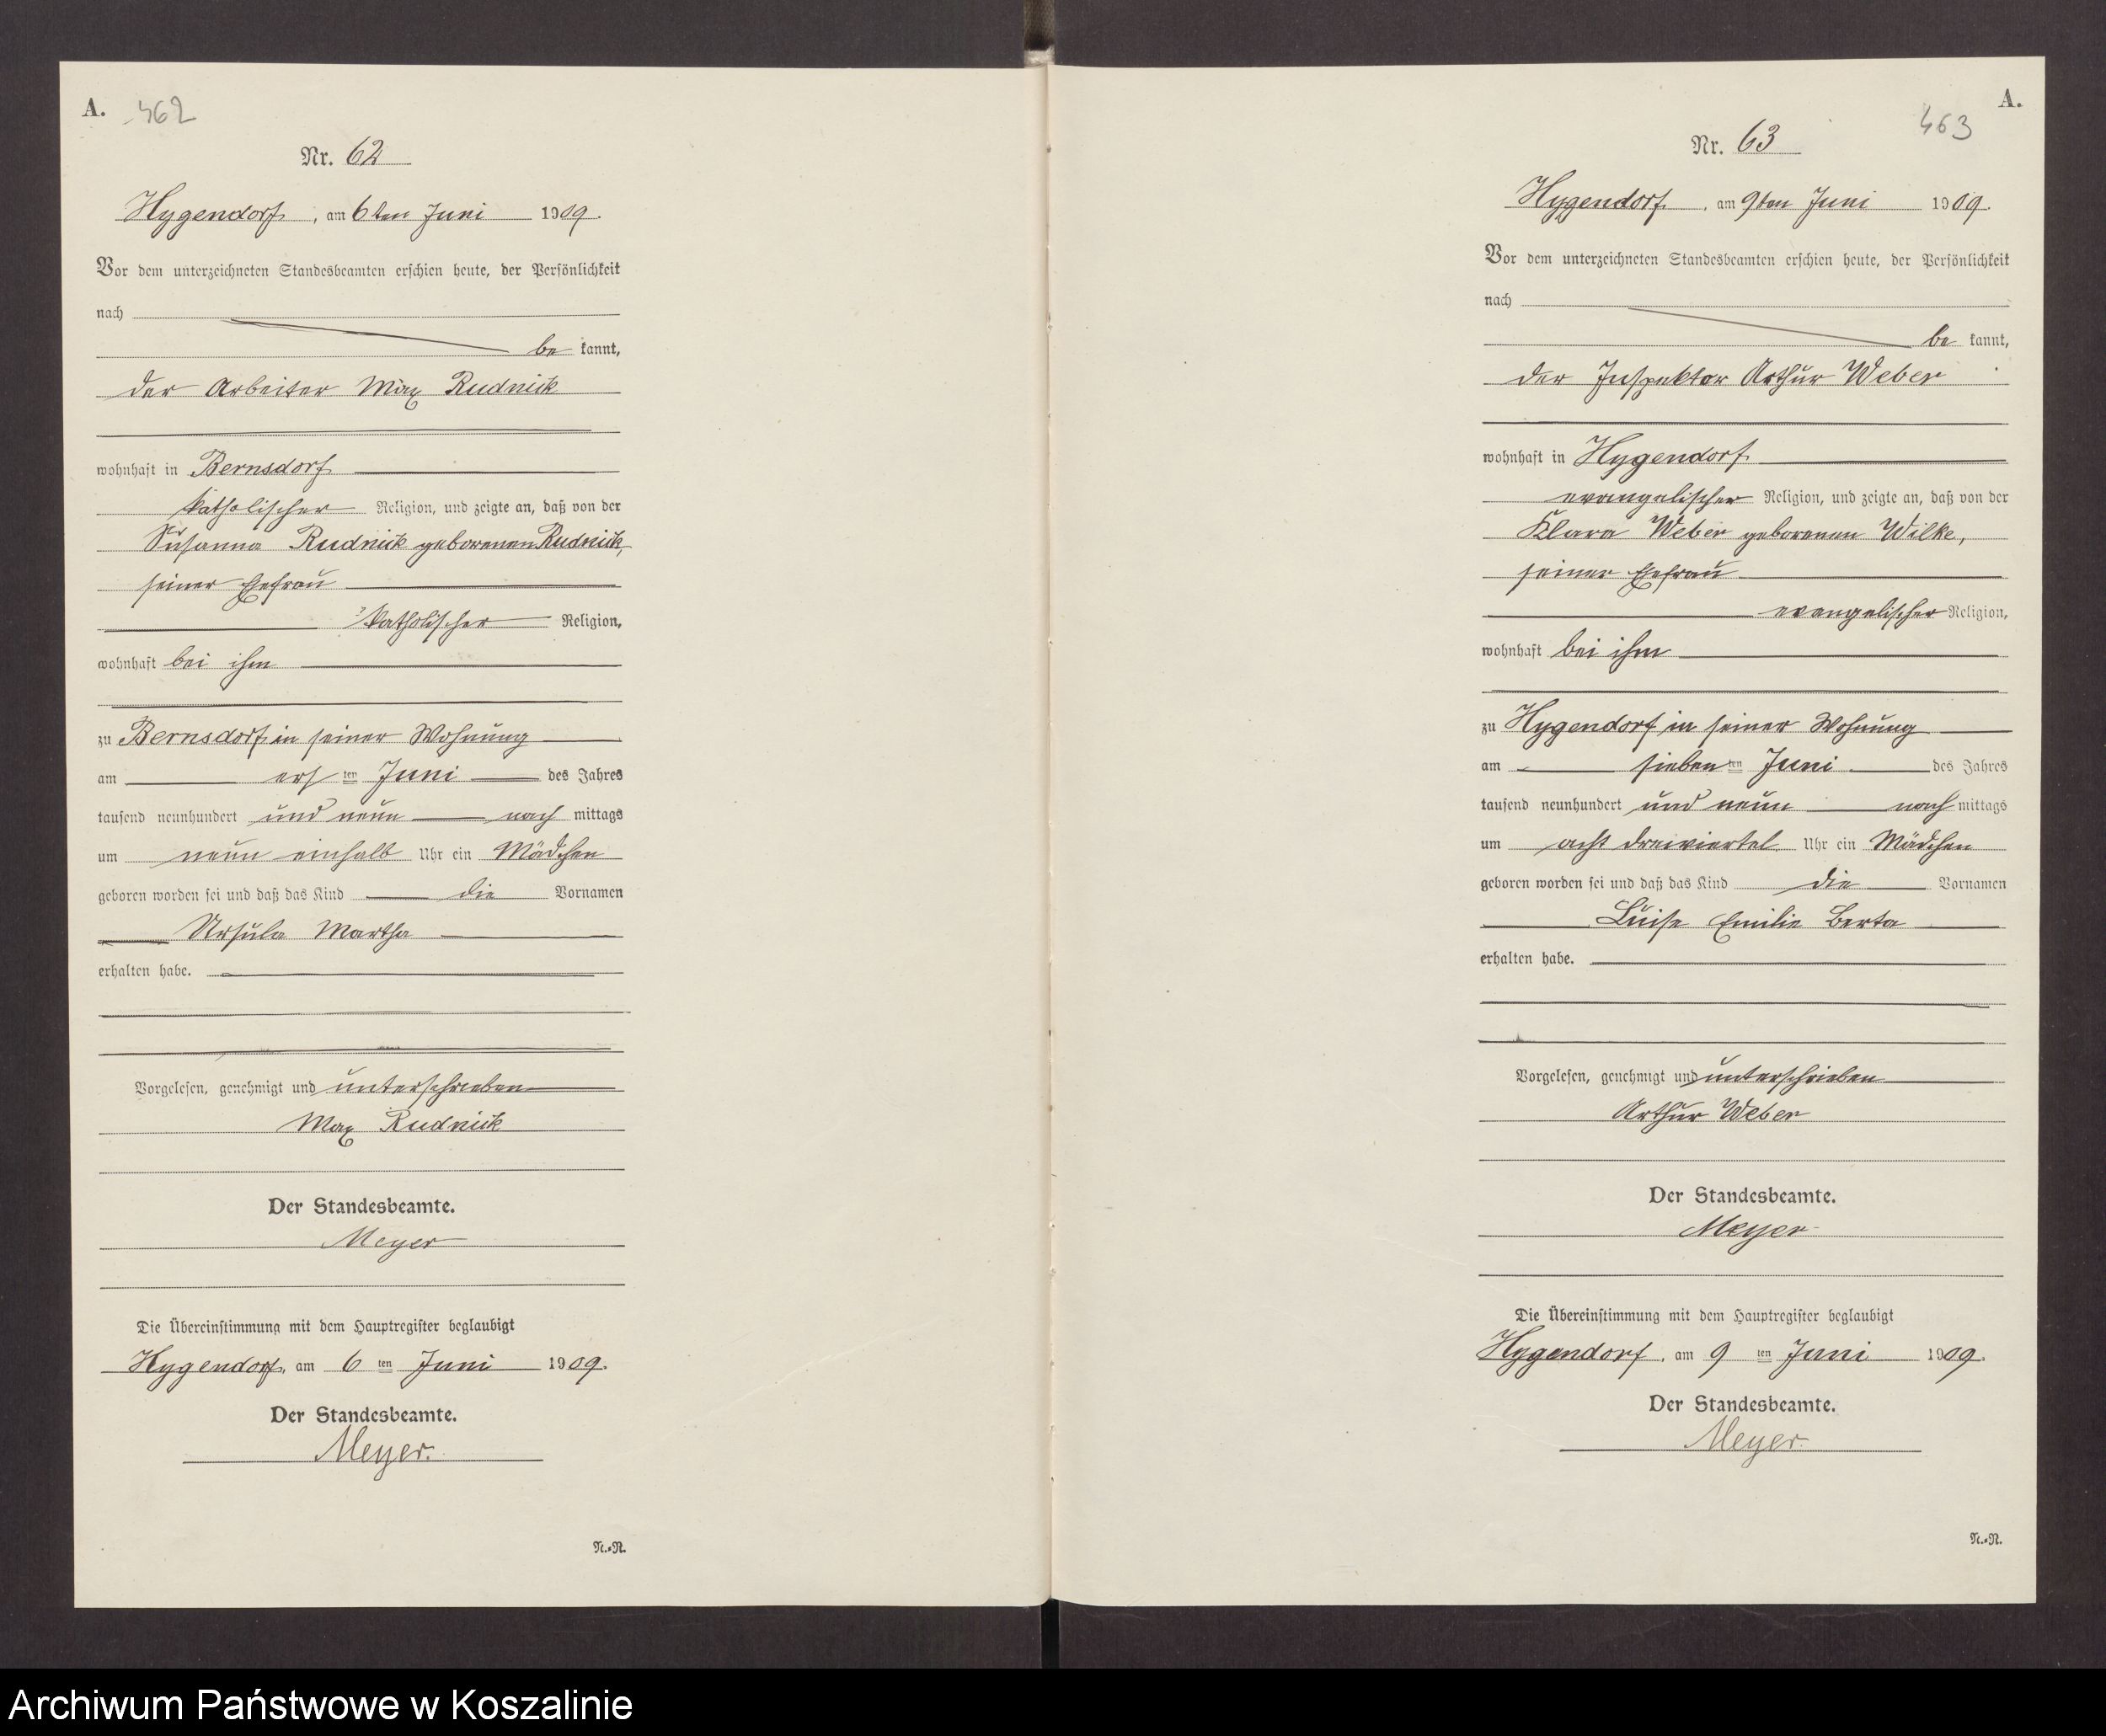 A. 462
Nr. 62
Hygendorf, am 6ten Juni 1909.
Vor dem unterzeichneten Standesbeamten erschien heute, der Persönlichkeit
nach
be kannt,
der Arbeiter Max Rudnick
wohnhaft in Bernsdorf
katholischer Religion, und zeigte an, daß von der
Susanna Rudnick geborenen Rudnick,
seiner Ehefrau
katholischer Religion,
wohnhaft bei ihm
zu Bernsdorf in seiner Wohnung
am ersten Juni des Jahres
tausend neunhundert und neun nach mittags
um neun einhalb Uhr ein Mädchen
geboren worden sei und daß das Kind die Vornamen
Ursula Martha
erhalten habe.
Vorgelesen, genehmigt und unterschrieben
Max Rudnick
Der Standesbeamte.
Meyer
Die Übereinstimmung mit dem Hauptregister beglaubigt
Hygendorf, am 6 ten Juni 1909.
Der Standesbeamte.
Meyer.
N.-R.
A.
463
Nr. 63
Hygendorf, am 9ten Juni 1909.
Vor dem unterzeichneten Standesbeamten erschien heute, der Persönlichkeit
nach
be kannt,
der Inspektor Arthur Weber
wohnhaft in Hygendorf
evangelischer Religion, und zeigte an, daß von der
Klara Weber geborenen Wilke,
seiner Ehefrau
evangelischer Religion,
wohnhaft bei ihm
zu Hygendorf in seiner Wohnung
am siebenten Juni des Jahres
tausend neunhundert und neun nach mittags
um acht dreiviertel Uhr ein Mädchen
geboren worden sei und daß das Kind die Vornamen
Luise Emilie Berta
erhalten habe.
Vorgelesen, genehmigt und unterschrieben
Arthur Weber
Der Standesbeamte.
Meyer
Die Übereinstimmung mit dem Hauptregister beglaubigt
Hygendorf, am 9 ten Juni 1909.
Der Standesbeamte.
Meyer.
N.-R.
Archiwum Państwowe w Koszalinie